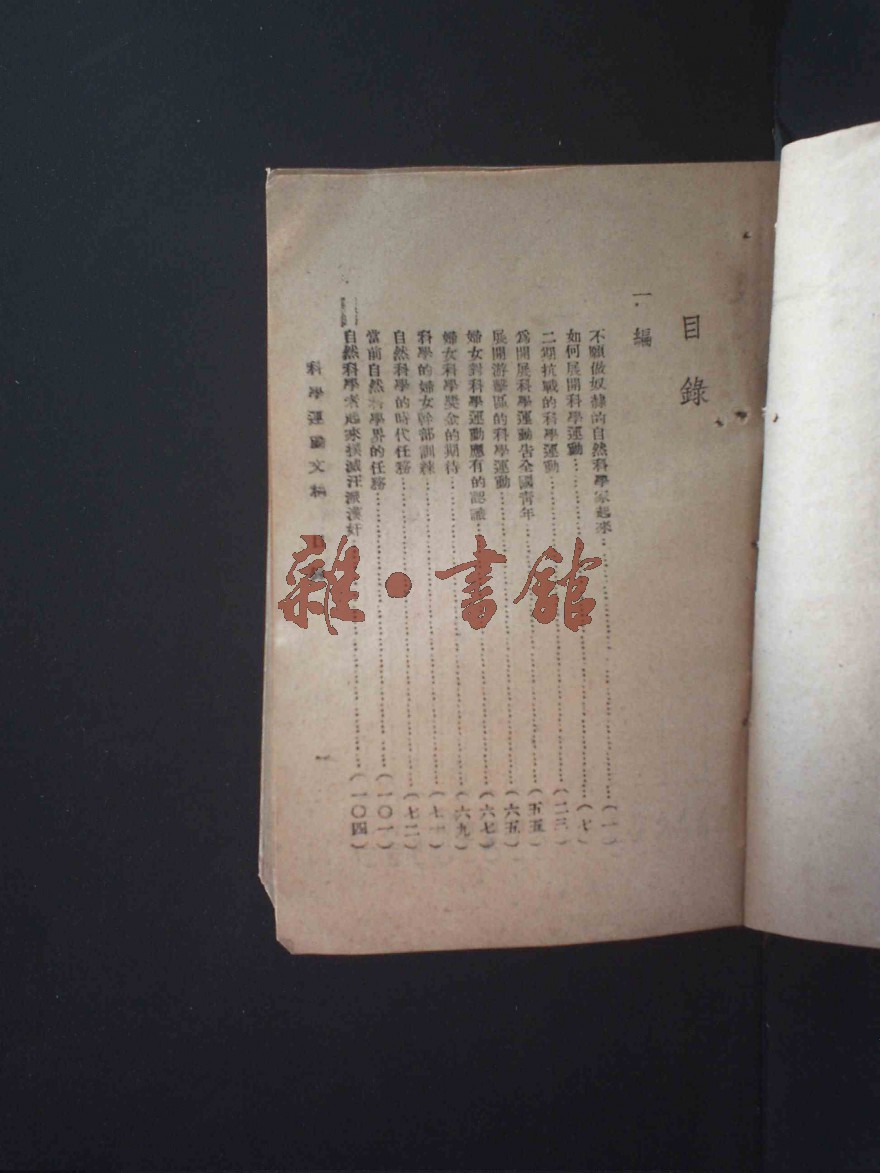 目錄
一．編
不願做奴隸的自然科學家起來……(一)
如何展開科學運動……(七)
二期抗戰的科學運動……(二三)
爲開展科學運動告全國青年……(五五)
展開游擊區的科學運動……(六五)
婦女對科學運動應有的認識……(六七)
婦女科學獎金的期待……(六九)
科學的婦女幹部訓練……(七一)
自然科學的時代任務……(七二)
當前自然科學界的任務……(一〇一)
自然科學者起來撲滅汪派漢奸……(一〇四)
科學運動文
一
雜·書館